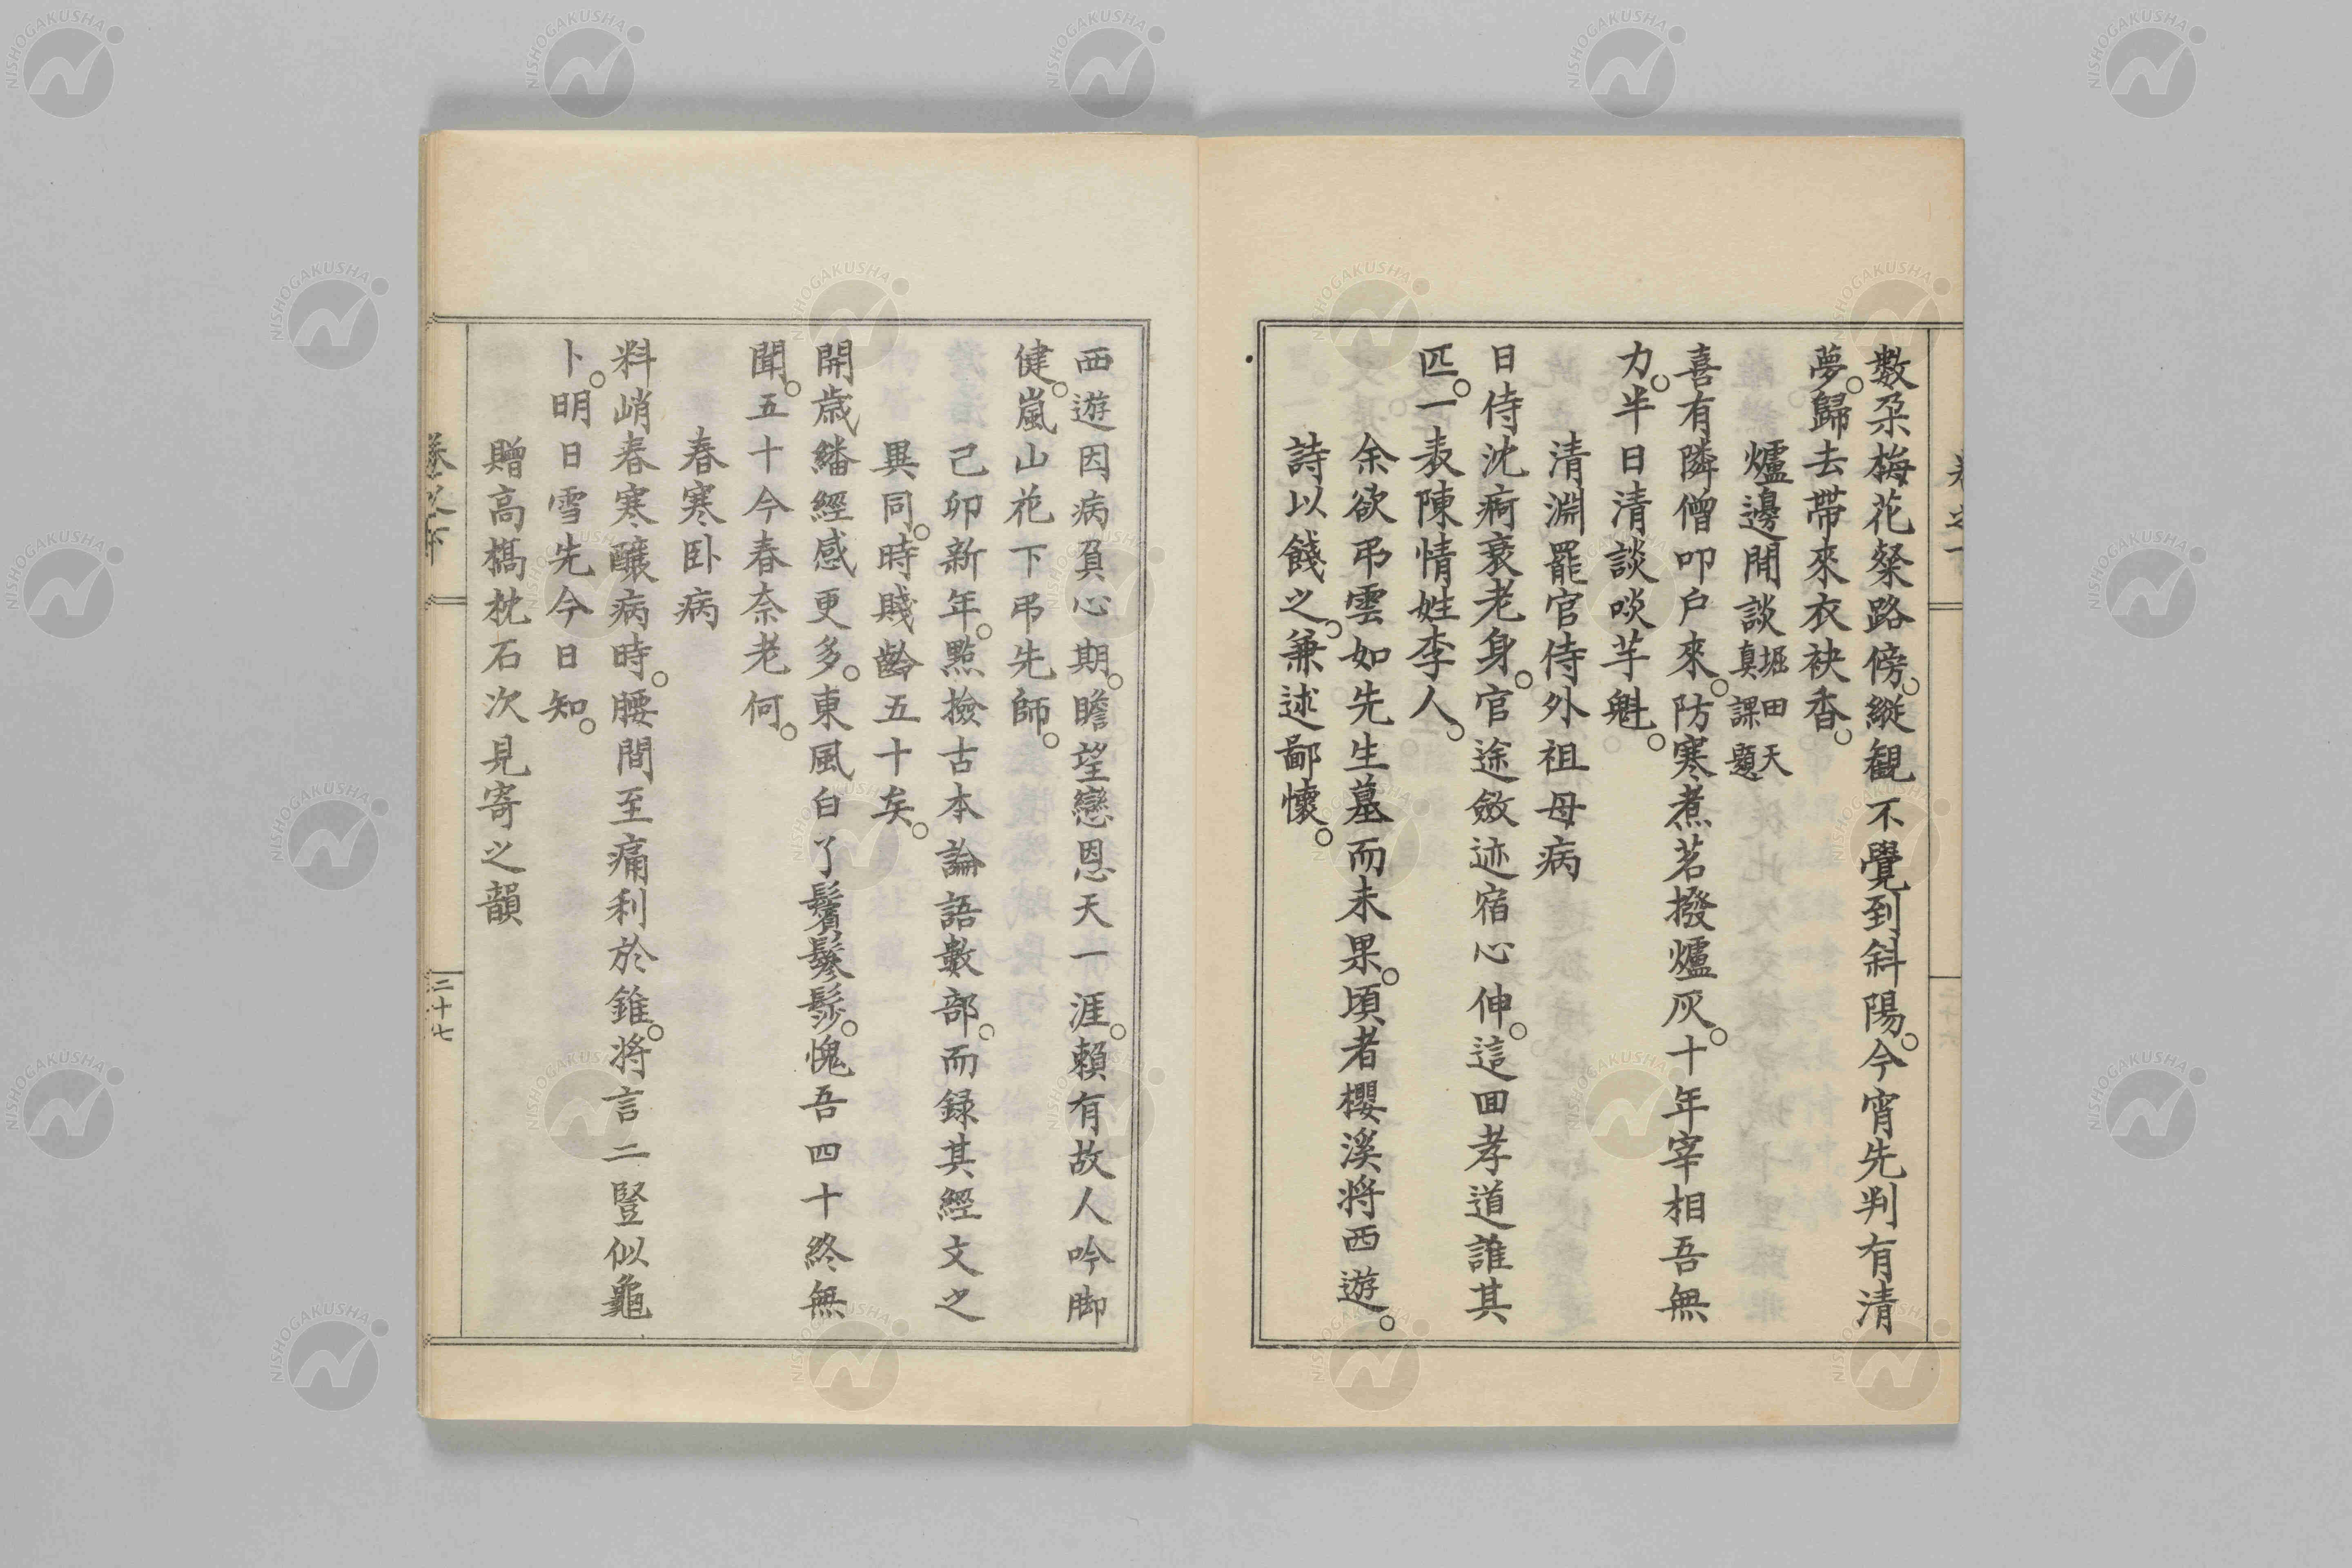 數朶梅花粲路傍。縱觀不覺到斜陽。今宵先判有清
夢。歸去帶來衣袂香。
爐邊閒談堀田天眞課題
喜有隣僧叩戶來。防寒煮茗撥爐灰。十年宰相吾無
力。半日清談啖芋魁。
清淵罷官侍外祖母病
日侍沈痾衰老身。官途斂迹宿心伸。這回孝道誰其
匹。一表陳情姓李人。
余欲弔雲如先生墓而未果。頃者櫻溪將西遊。
詩以餞之。兼述鄙懷。
西遊因病負心期。瞻望戀恩天一涯。賴有故人吟脚
健。嵐山花下弔先師。
己卯新年。點撿古本論語數部。而録其經文之
異同。時賤齡五十矣。
開歲繙經感更多。東風白了鬢鬖髿。愧吾四十終無
聞。五十今春奈老何。
春寒卧病
料峭春寒釀病時。腰間至痛利於錐。將言二豎似龜
卜。明日雪先今日知。
贈高橋枕石次見寄之韻
卷之下
三十七
NISHOGAKUSHA